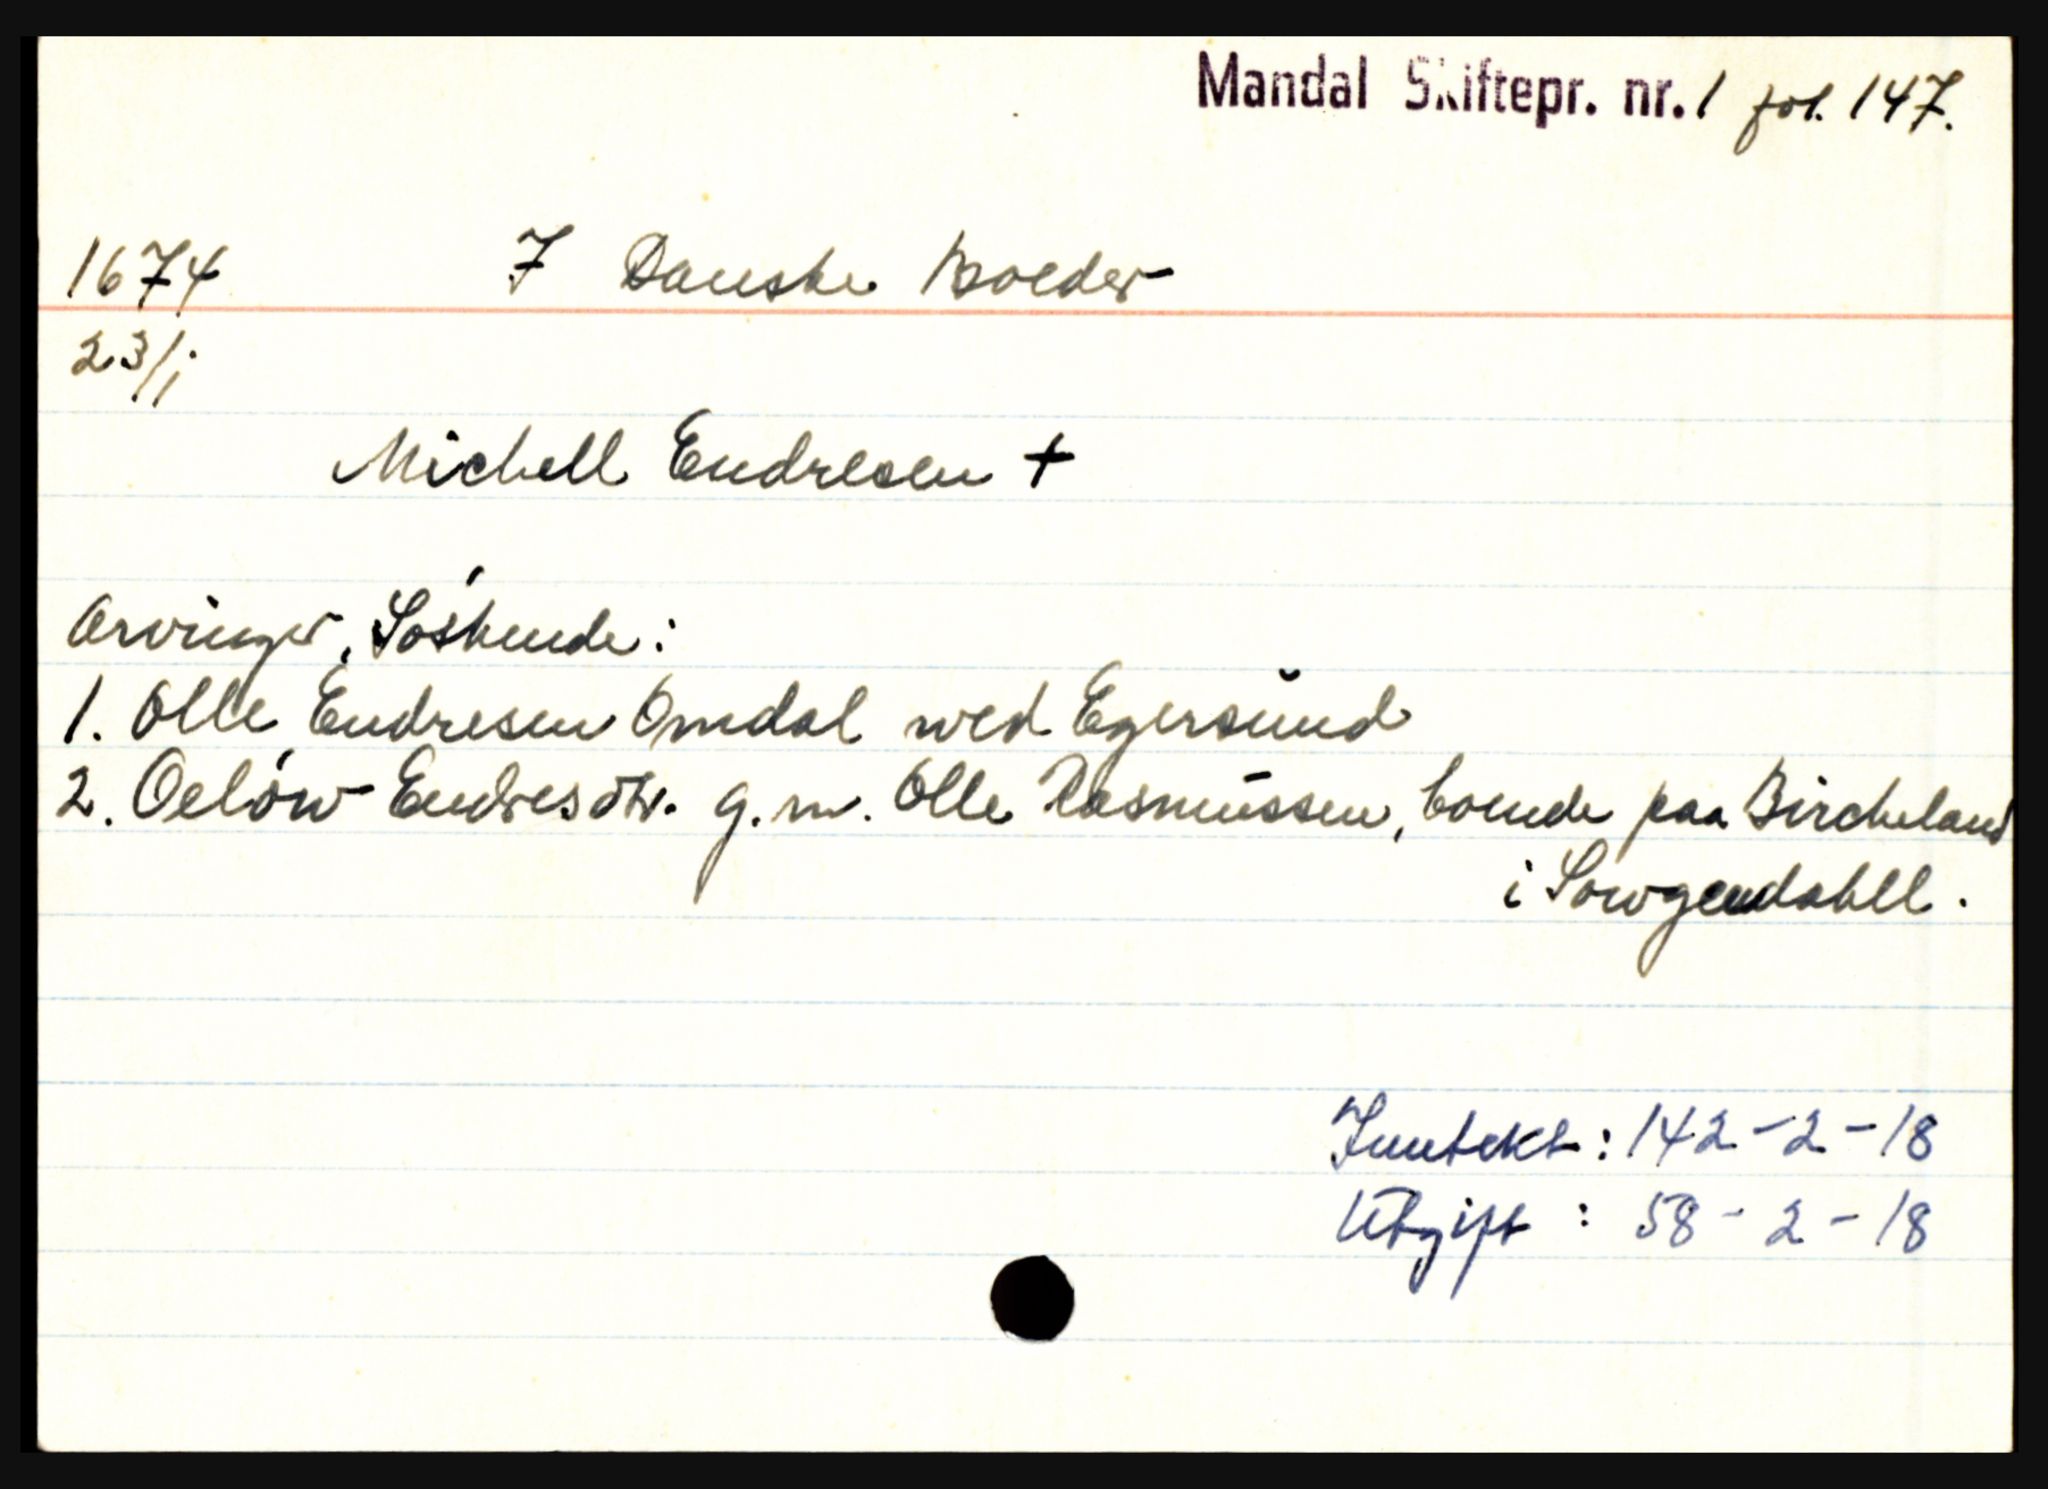 Mandal Skiftepr. nr. 1 fol. 147.
1674 7 Danske Boeder
23/1
Michell Endresen +
Arvinger, Söskende:
1. Olle Endresen Omdal wed Egersund
2. Oelów Endresdtr. g.m. Olle Rasmussen, boende paa Bircheland
i Sowgendahll.
Inntekt: 142-2-18
Utgift: 58-2-18